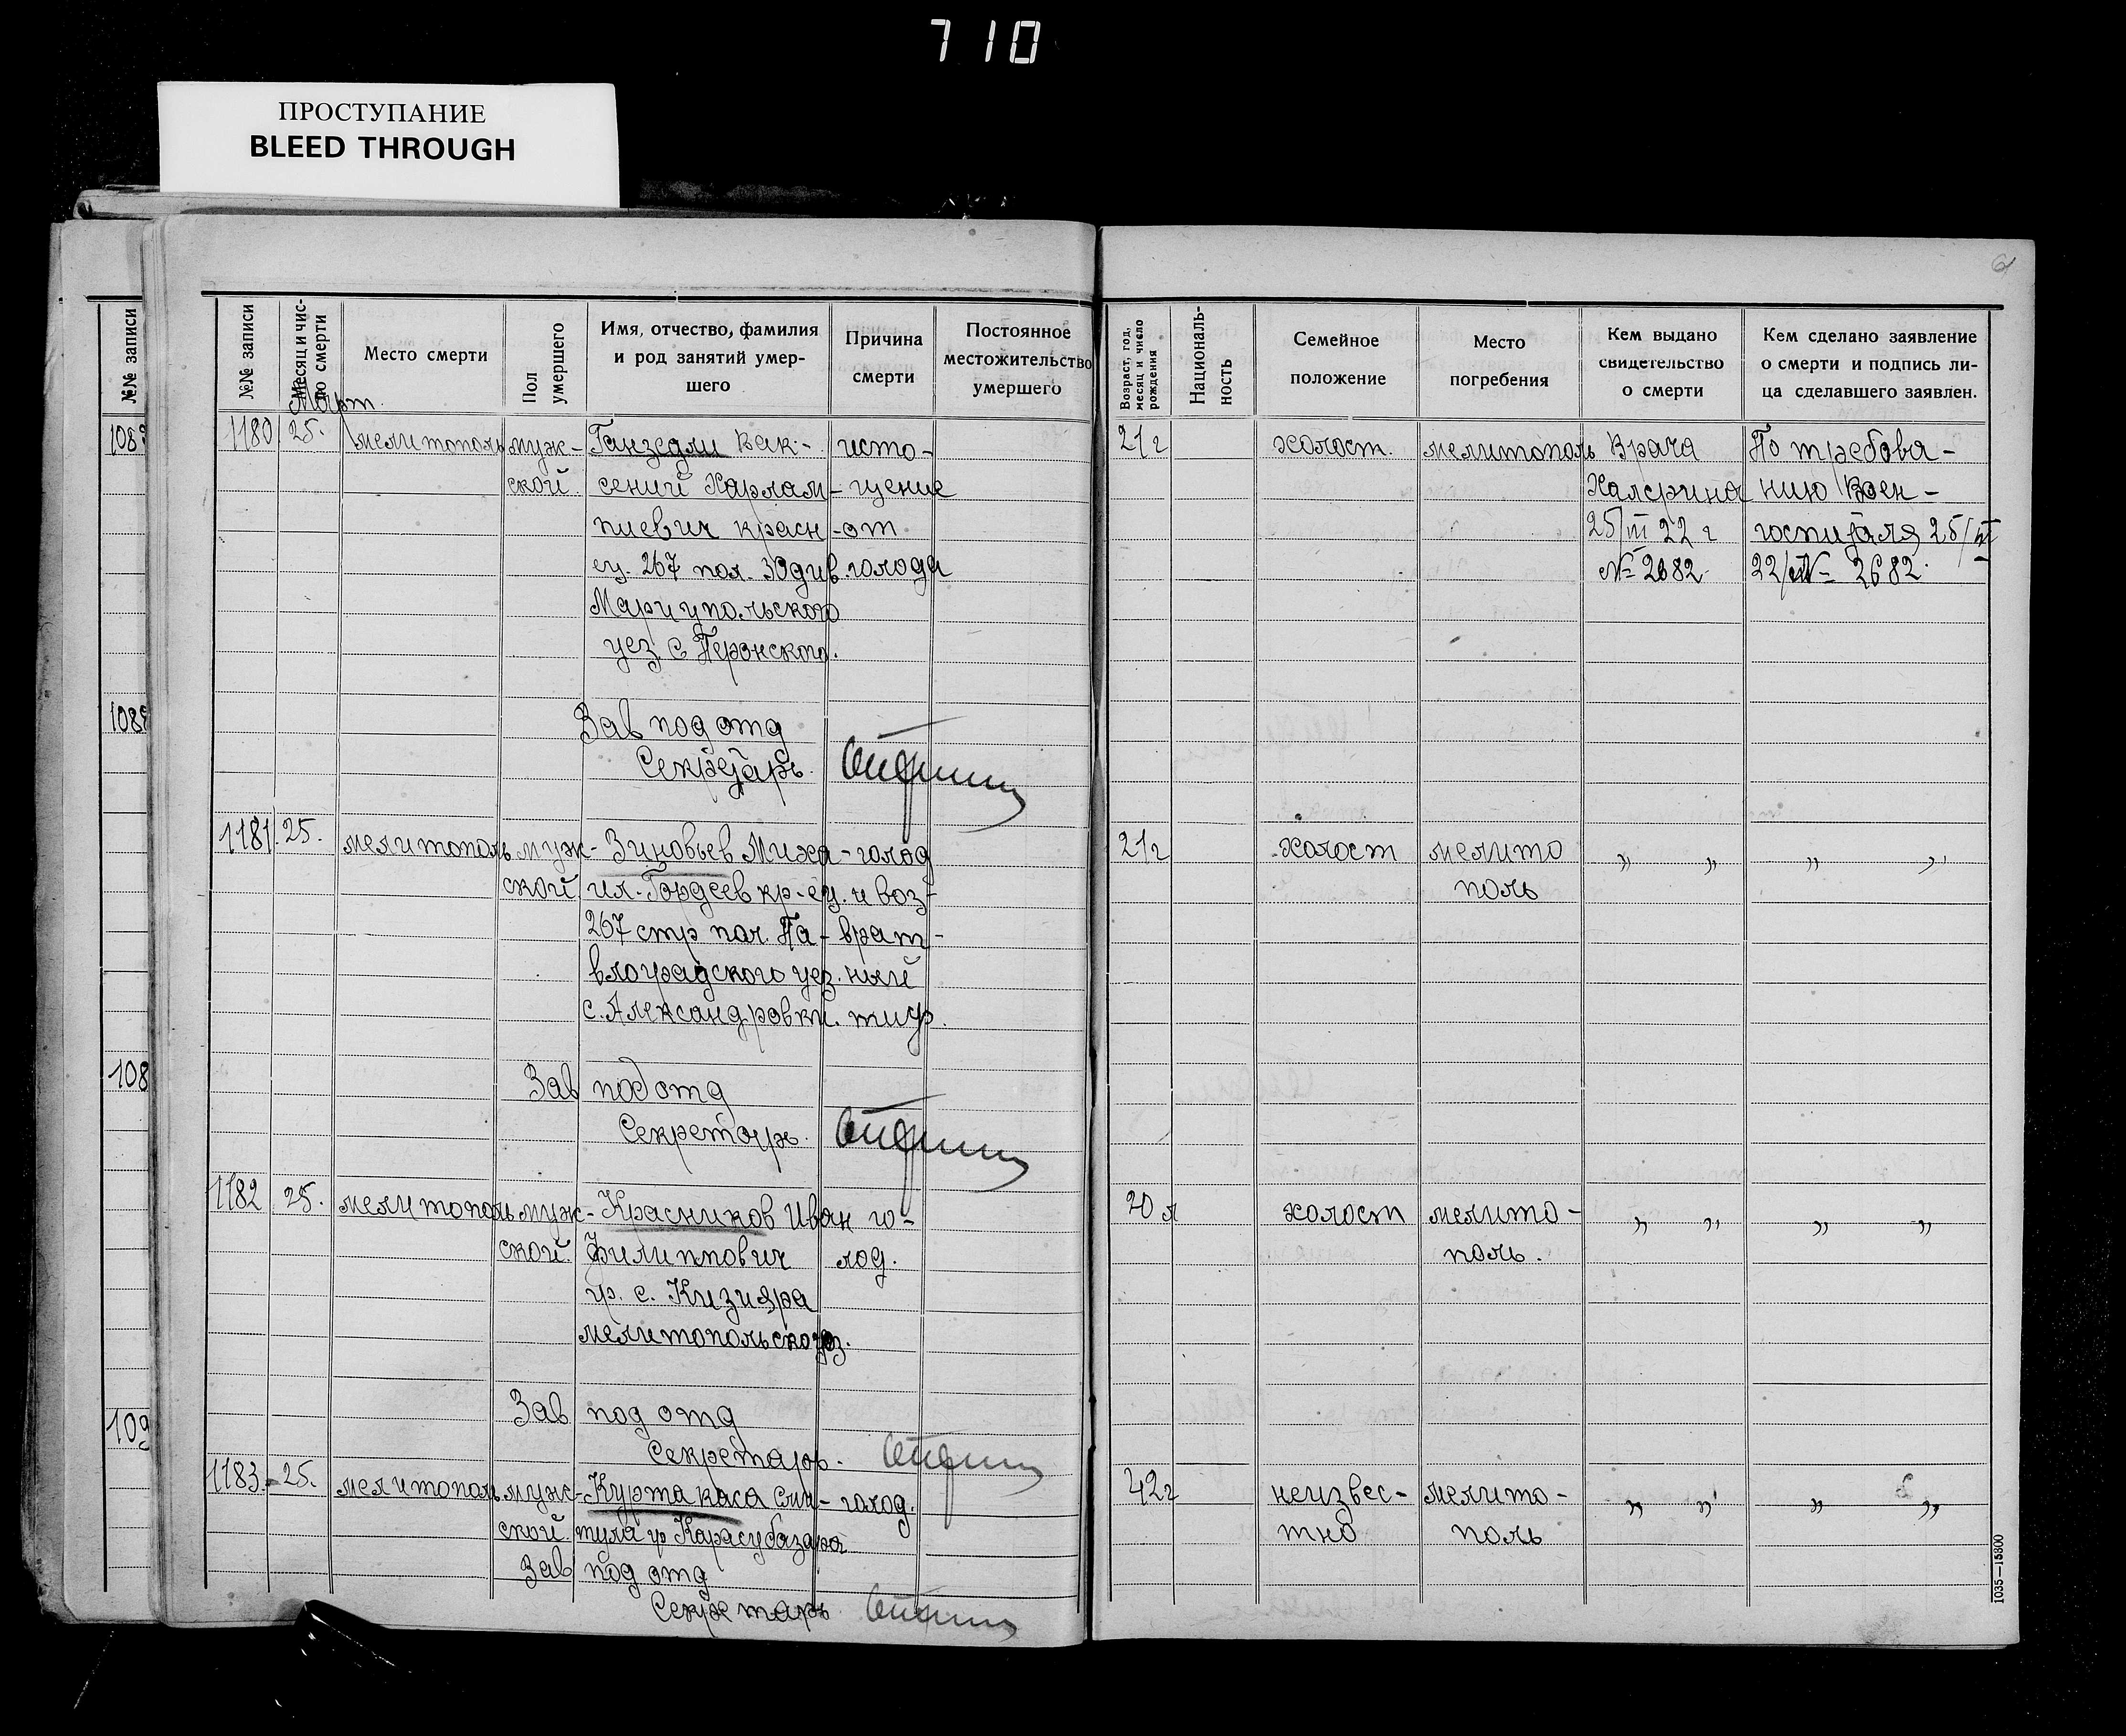 710
ПРОСТУПАНИЕ
BLEED THROUGH
№№ записи
№№ записи
Месяц и чис-
ло смерти
Место смерти
Пол
умершего
Имя, отчество, фамилия
и род занятий умер-
шего
Причина
смерти
Постоянное
местожительство
умершего
Возраст, год,
месяц и число
рождения
Националь-
ность
Семейное
положение
Место
погребения
Кем выдано
свидетельство
о смерти
Кем сделано заявление
о смерти и подпись ли-
ца сделавшего заявлен.
Март
1180 25. мелитополь муж- Ганзедли Вак- исто- 21 г холост. мелитополь Врача По требова-
ской. сений Харлам- щение нию Воен-
пиевич красн- от 25/III 22 г госпиталя 25/III
ец. 267 пол. 30 див. голода № 2682 22/ № 2682.
Мариупольского
уез с
Зав под отд
Секретарь.
1181. 25. мелитополь муж- Зиновьев Миха- голод 21 г холост мелито „ „ „ „
ской ил. Гордеев кр-ец. и воз- поль
267 стр пол. Па- врат-
влоградского уез. ный
с. Александровки. тиф.
Зав под отд
Секретарь.
1182 25. мелитополь муж- Красников Иван го- 20 л холост мелито- „ „ „ „
ской. Филиппович лод. поль.
гр. с. Кизияра
мелитопольского уез.
Зав под отд
Секретарь.
1183.- 25. мелитополь муж- Курта каса голод. 42 г неизвес- мелито- „ „ „ „
ской. гр Карасубазара тно поль
Зав под отд
Секретарь
1035—15800
108
108
108
109